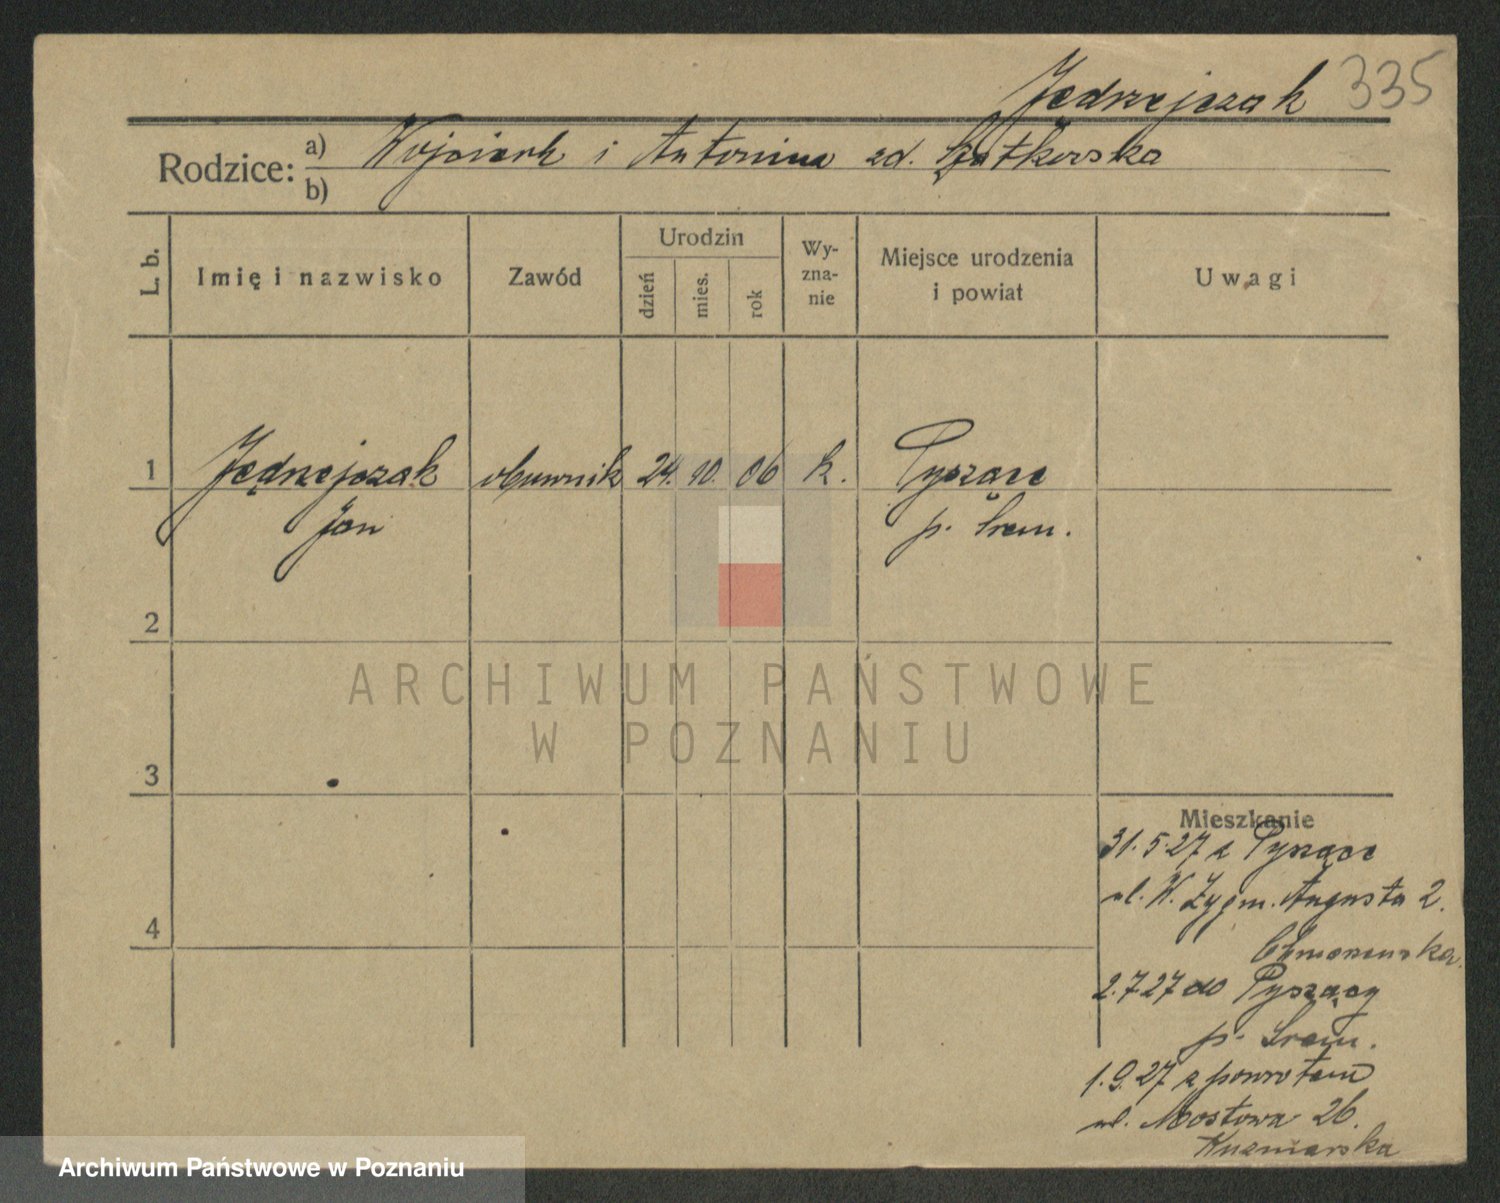 Jędrzejczak 335
Rodzice: a) Wojciech i Antonina zd.
b)
L. b.
Imię i nazwisko
Zawód
Urodzin
dzień
mies.
rok
Wy-
zna-
nie
Miejsce urodzenia
i powiat
Uwagi
1 Jędrzejczak obuwnik 24. 10. 06 k. Pysząca
Jan p. Śrem.
2
3
4
Mieszkanie
31.5.27 z Pysząca
ul. W. Zygm. Augusta 2.
2.7.27 do Pyszący
p. Śrem.
1.9.27 z powrotem
ul. Mostowa 26.
Kuźniarska
ARCHIWUM PAŃSTWOWE
W POZNANIU
Archiwum Państwowe w Poznaniu